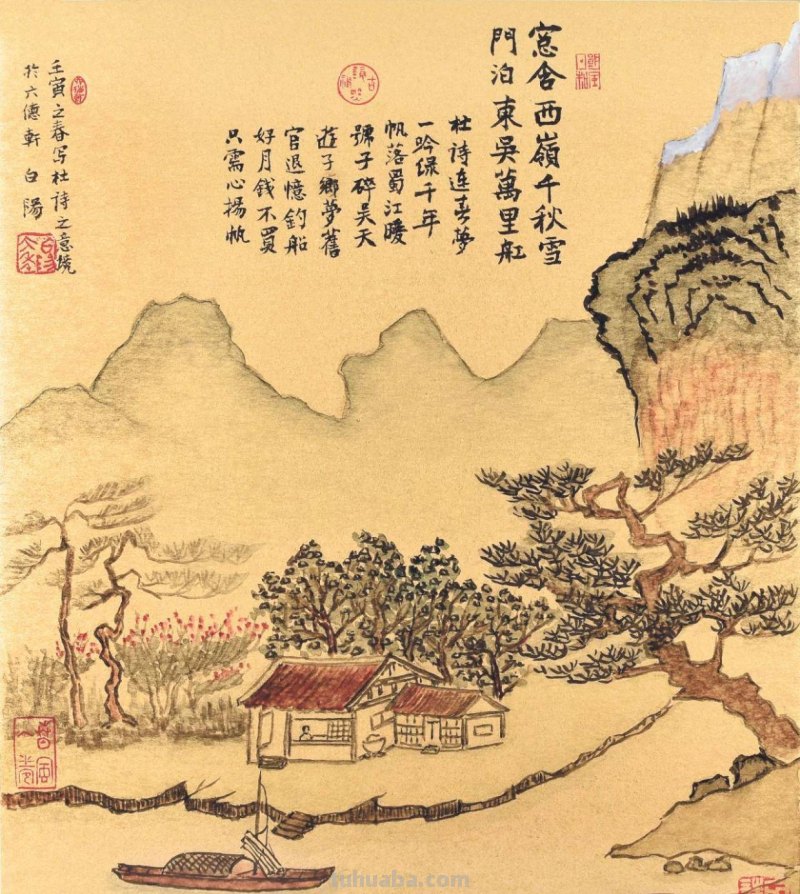 窓含西嶺千秋雪
門泊東吳萬里舡
杜诗连春夢
一吟绿千年
帆落蜀江暖
號子碎吴天
遊子鄉夢舊
官退憶釣船
好月钱不買
只需心揚帆
壬寅之春写杜诗之意境
於六德軒 白陽
fuhuaba.com